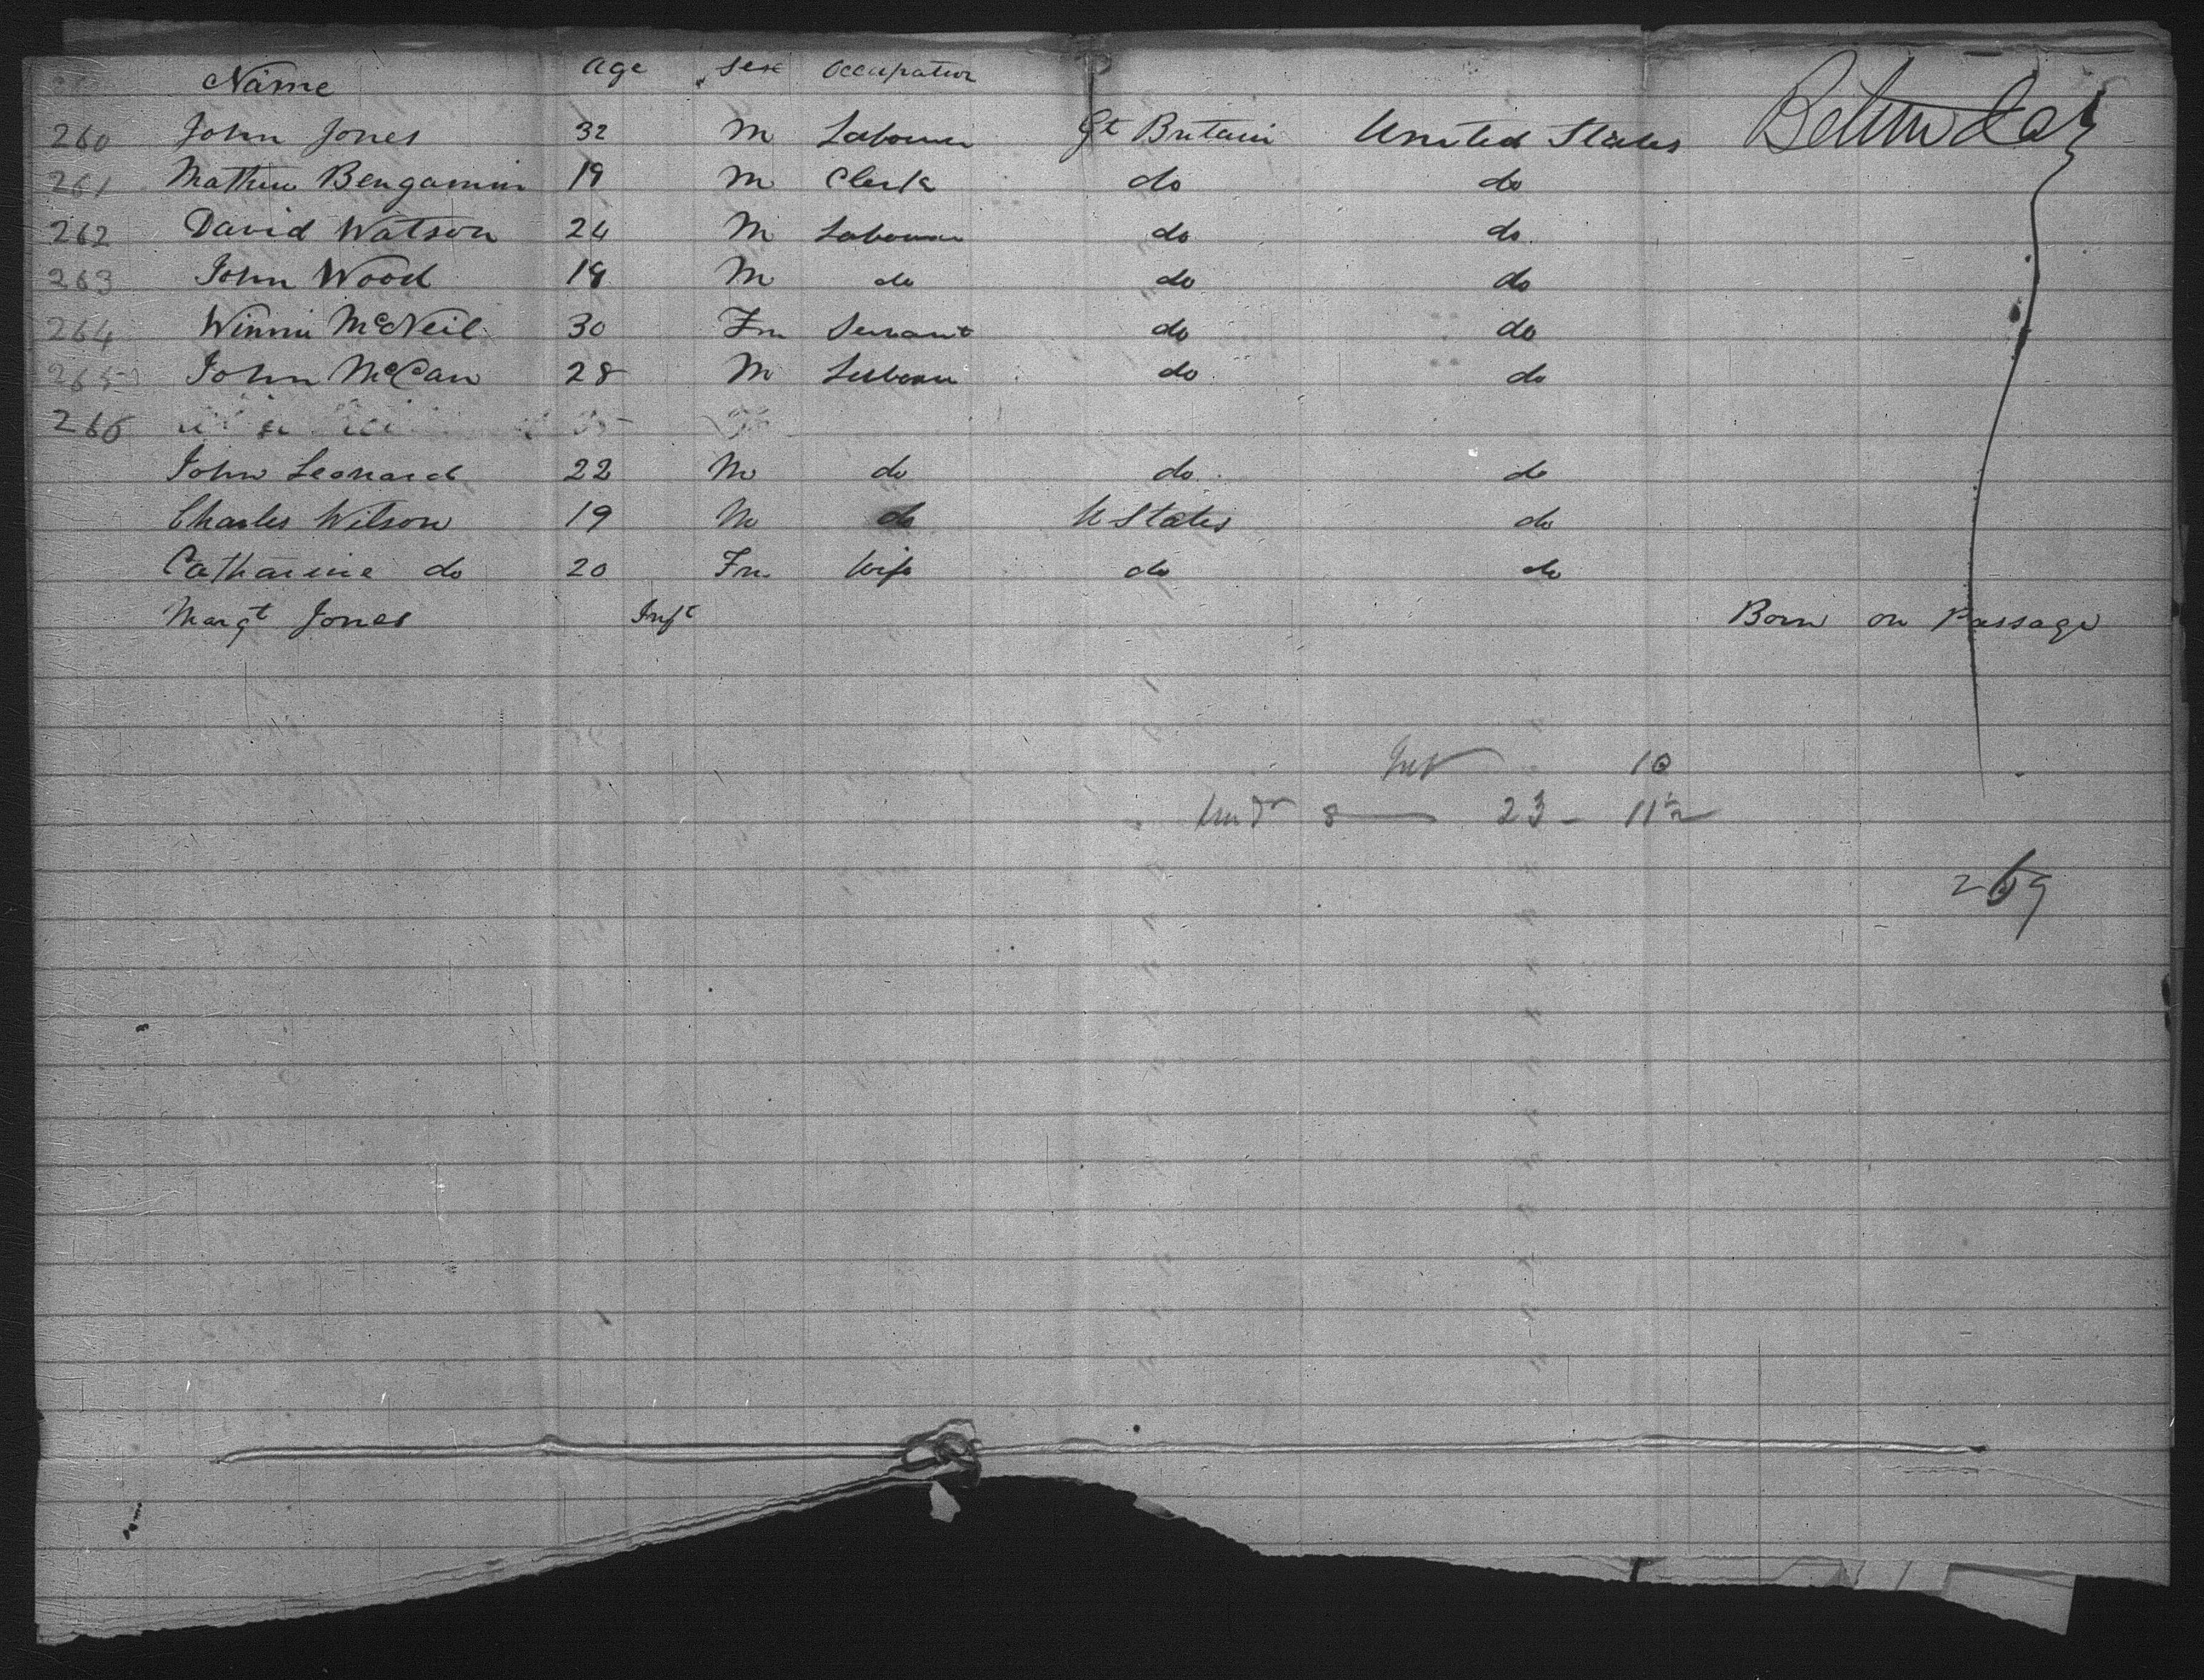 Name Age Sex Occupation
260 John Jones 32 M Labourer Gt Britain United States Between decks
261 Mathew Bengamin 19 M Clerk do do
262 David Watson 24 M Labourer do do
263 John Wood 18 M do do do
264 Winni McNeil 30 Fm Servant do do
265 John McCan 28 M do do
266
John Leonard 22 M do do do
Charles Wilson 19 M do U States do
Catharine do 20 Fm Wife do do
Margt Jones Inft Born on Passage
10
8 23 - 11
269